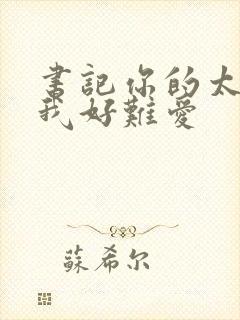 書記你的太
我好難愛
蘇希尔